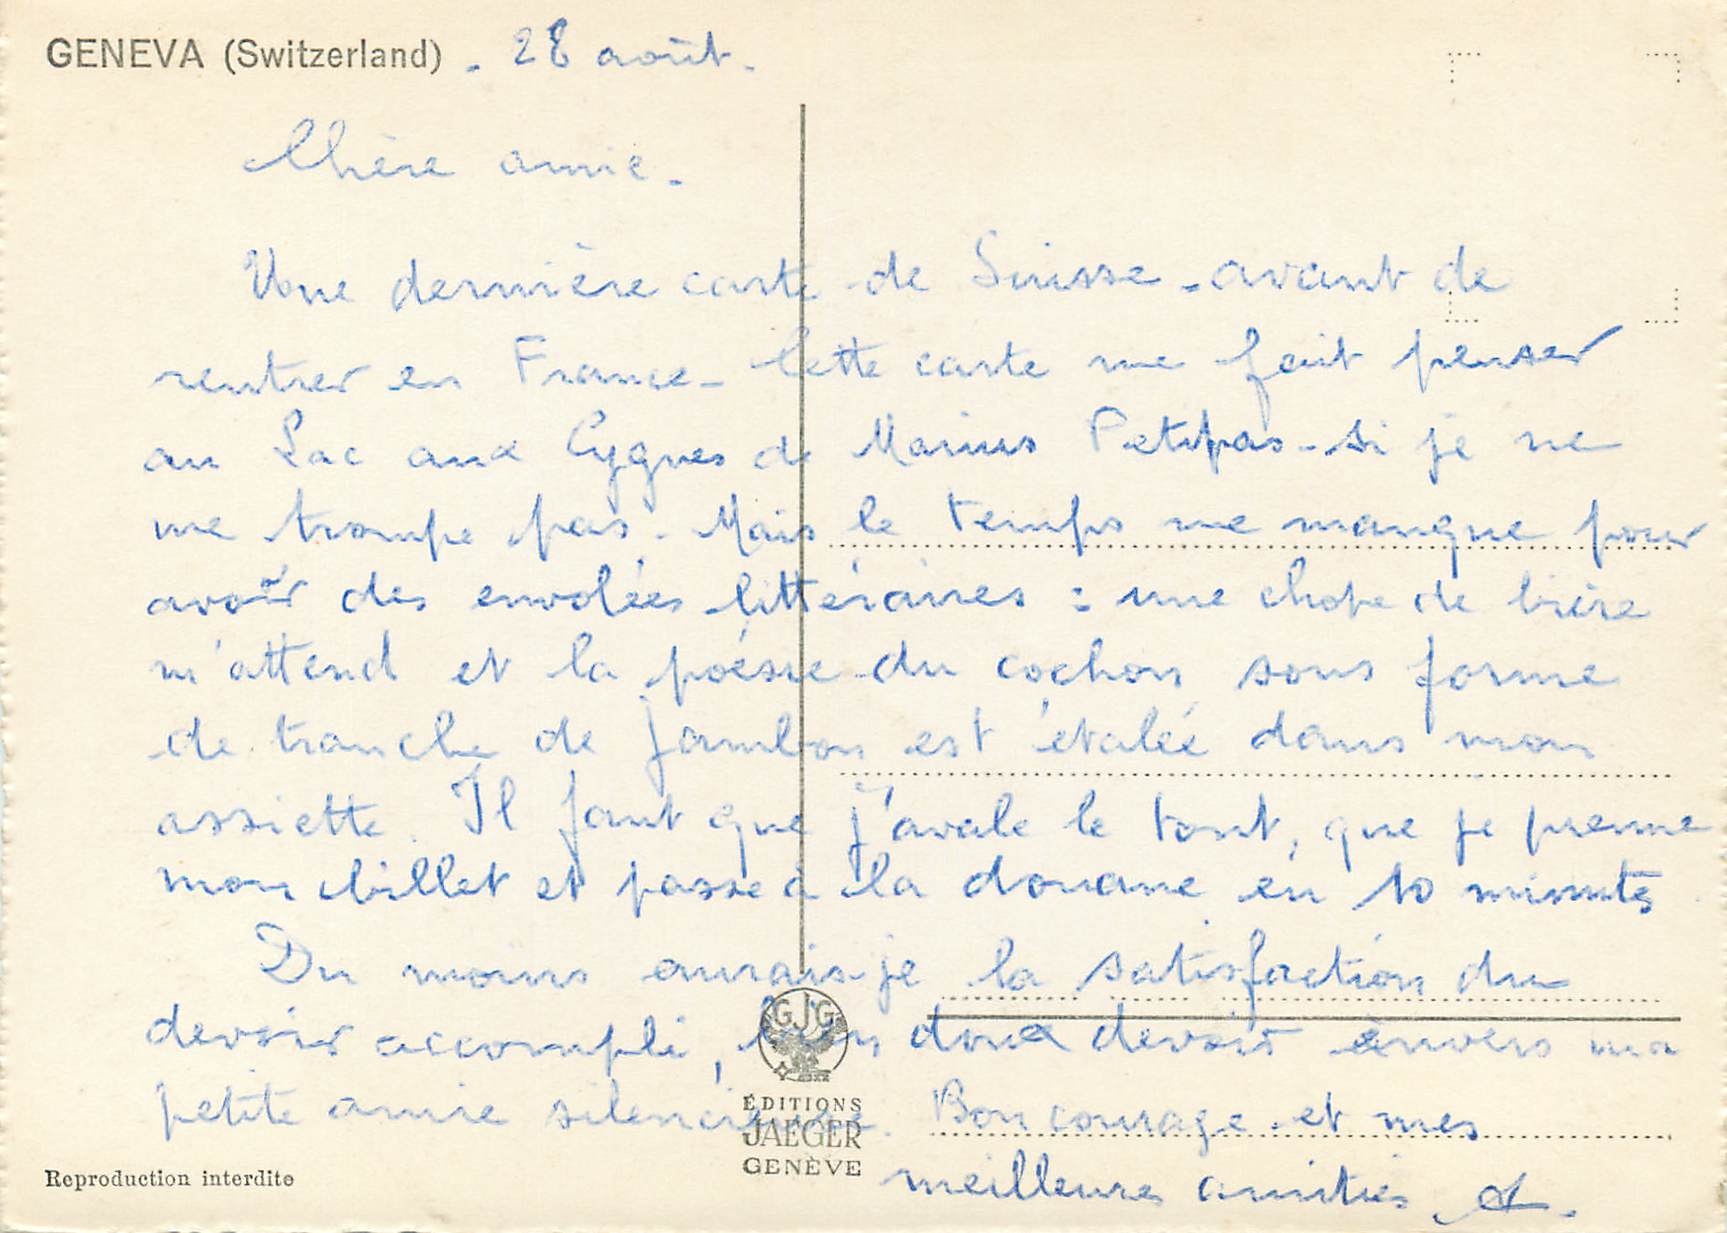 GENEVA (Switzerland) - 28 août.
Chère amie.
Une dernière carte de Suisse - avant de
rentrer en France - Cette carte me fait penser
au Lac aux Cygnes de Marius Petipas - si je ne
me trompe pas. Mais le temps me manque pour
avoir des envolées littéraires : une chope de bière
m'attend et la poésie du cochon sous forme
de tranche de jambon est étalée dans mon
assiette. Il faut que j'avale le tout, que je prenne
mon billet et passe à la douane en 10 minutes
Du moins aurais-je la satisfaction du
devoir accompli, bien doux devoir envers ma
petite amie silencieuse. Bon courage - et mes
meilleures amitiés
GJG
ÉDITIONS
JAEGER
GENÈVE
Reproduction interdite